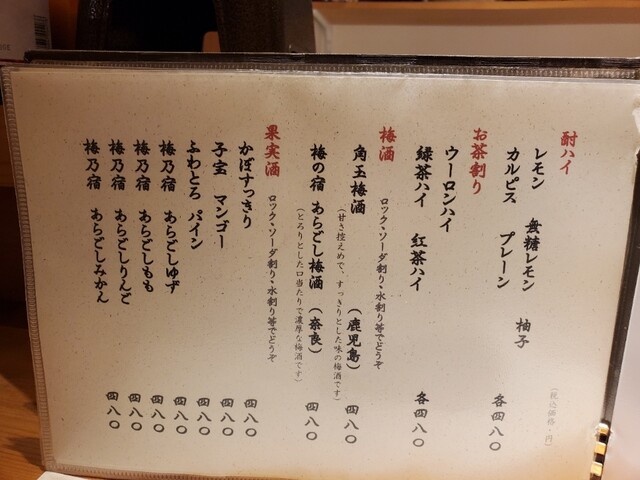 酎ハイ
レモン 無糖レモン 柚子
カルピス プレーン 各四八〇
(税込価格・円)
お茶割り
ウーロンハイ
緑茶ハイ 紅茶ハイ 各四八〇
梅酒 ロック、ソーダ割り、水割り等でどうぞ
角玉梅酒 (鹿児島) 四八〇
(甘さ控えめで、すっきりとした味の梅酒です)
梅の宿 あらごし梅酒 (奈良) 四八〇
(とろりとした口当たりで濃厚な梅酒です)
果実酒 ロック、ソーダ割り、水割り等でどうぞ
かぼすっきり 四八〇
子宝 マンゴー 四八〇
ふわとろ パイン 四八〇
梅乃宿 あらごしゆず 四八〇
梅乃宿 あらごしもも 四八〇
梅乃宿 あらごしりんご 四八〇
梅乃宿 あらごしみかん 四八〇